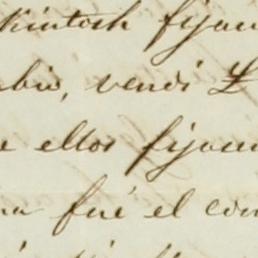 kintosh fijan
mbio, vendí £
e ellos fijam
na fué el con